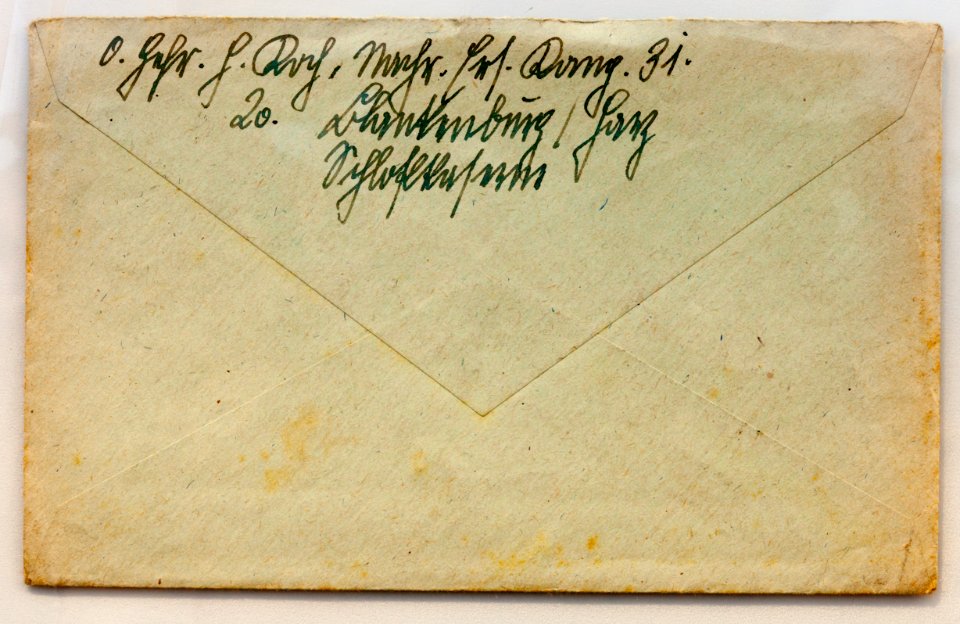 O. Gefr. H. Koch, Nachr. Ers. Komp. 31.
20. Blankenburg / Harz
Schloßkaserne